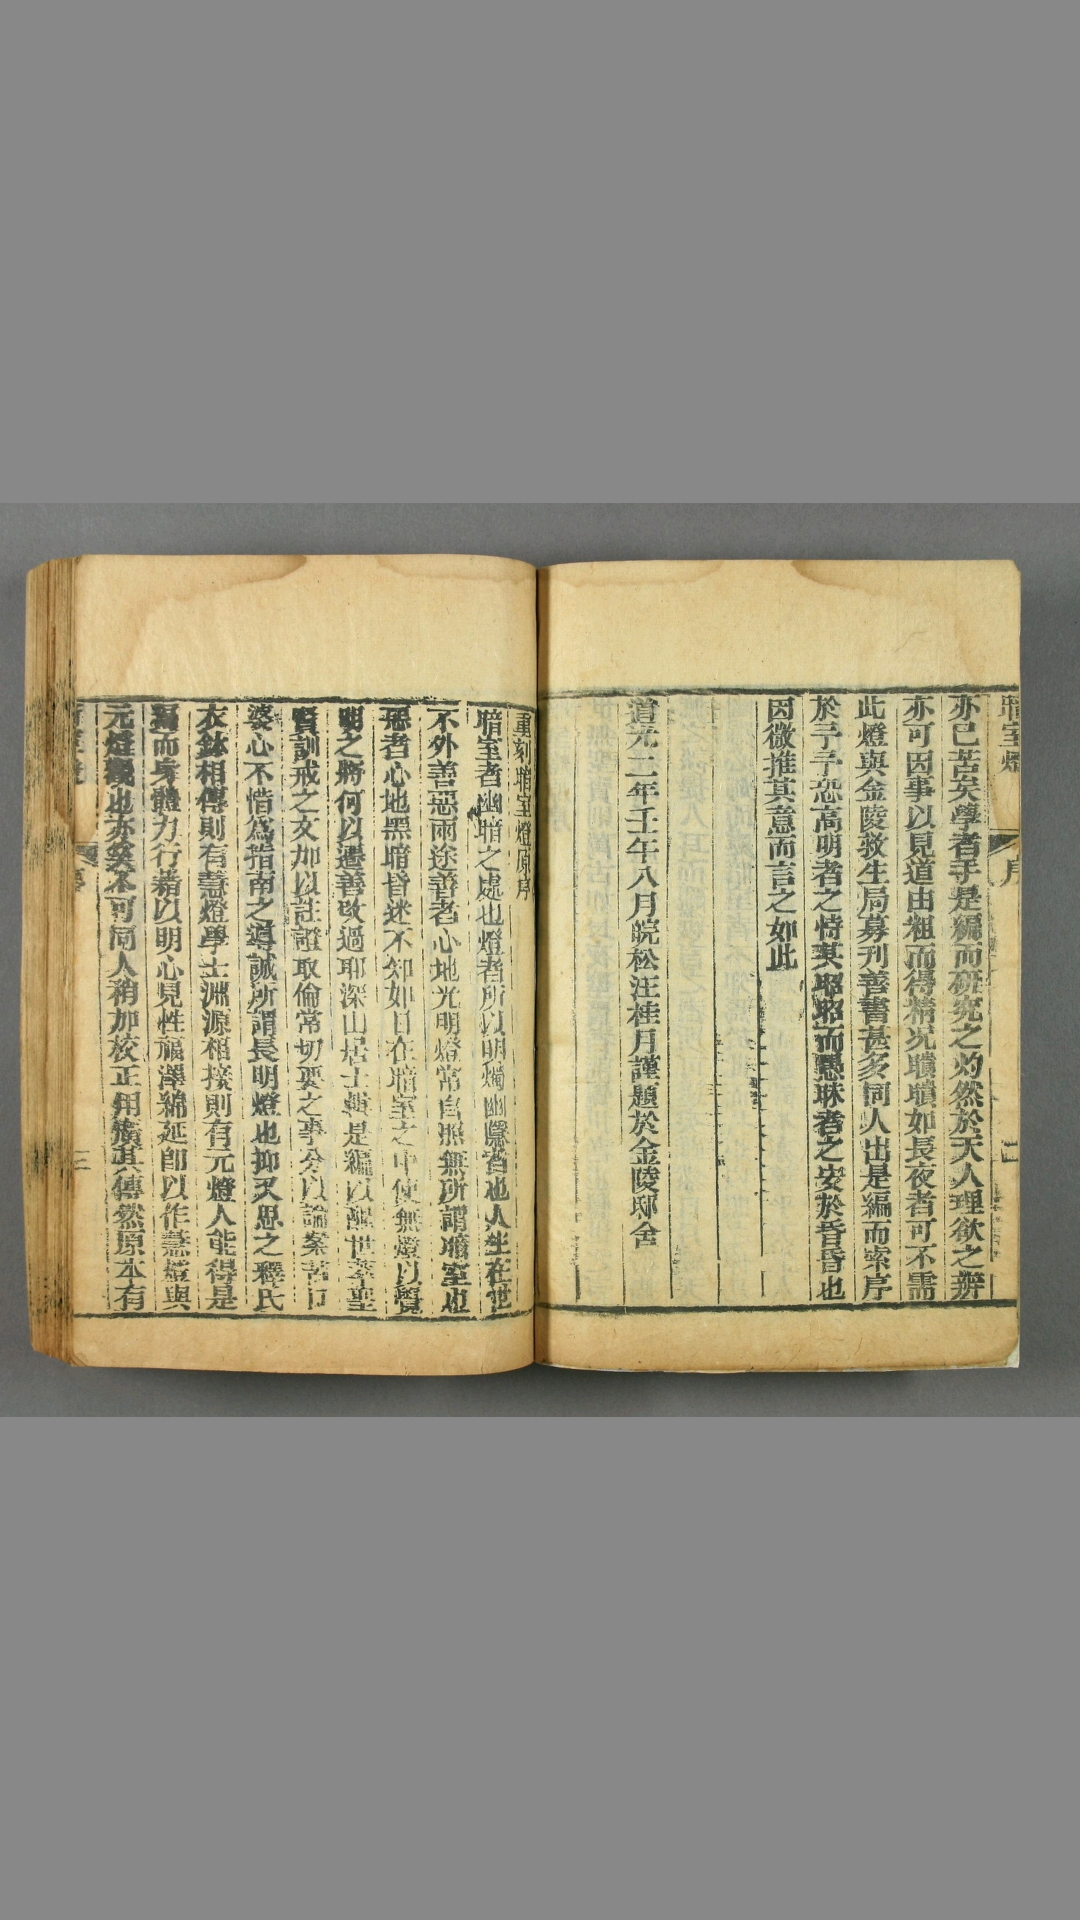 暗室燈 序
亦已苦矣學者手是編而研究之灼然於天人理欲之辨
亦可因事以見道由粗而得精况瞶瞶如長夜者可不需
此燈與金陵救生局募刊善書甚多同人出是編而索序
於予予恐高明者之恃其昭昭而愚昧者之安於昏昏也
因微推其意而言之如此
道光二年壬午八月皖松汪桂月謹題於金陵邸舍
重刻暗室燈原序
暗室者幽暗之處也燈者所以明燭幽隱者也人生在世
不外善惡兩途善者心地光明燈常自照無所謂暗室也
惡者心地黑暗昏迷不知如日在暗室之中使無燈以覺
明之將何以遷善改過耶深山居士輯是編以醒世萃聖
賢訓戒之文加以註證取倫常切要之事分以論案苦口
婆心不惜爲指南之導誠所謂長明燈也抑又思之釋氏
衣鉢相傳則有慧燈學士淵源相接則有元燈人能得是
編而身體力行藉以明心見性福澤綿延卽以作慧燈與
元燈觀也亦奚不可同人稍加校正用廣其傳然原本有
三